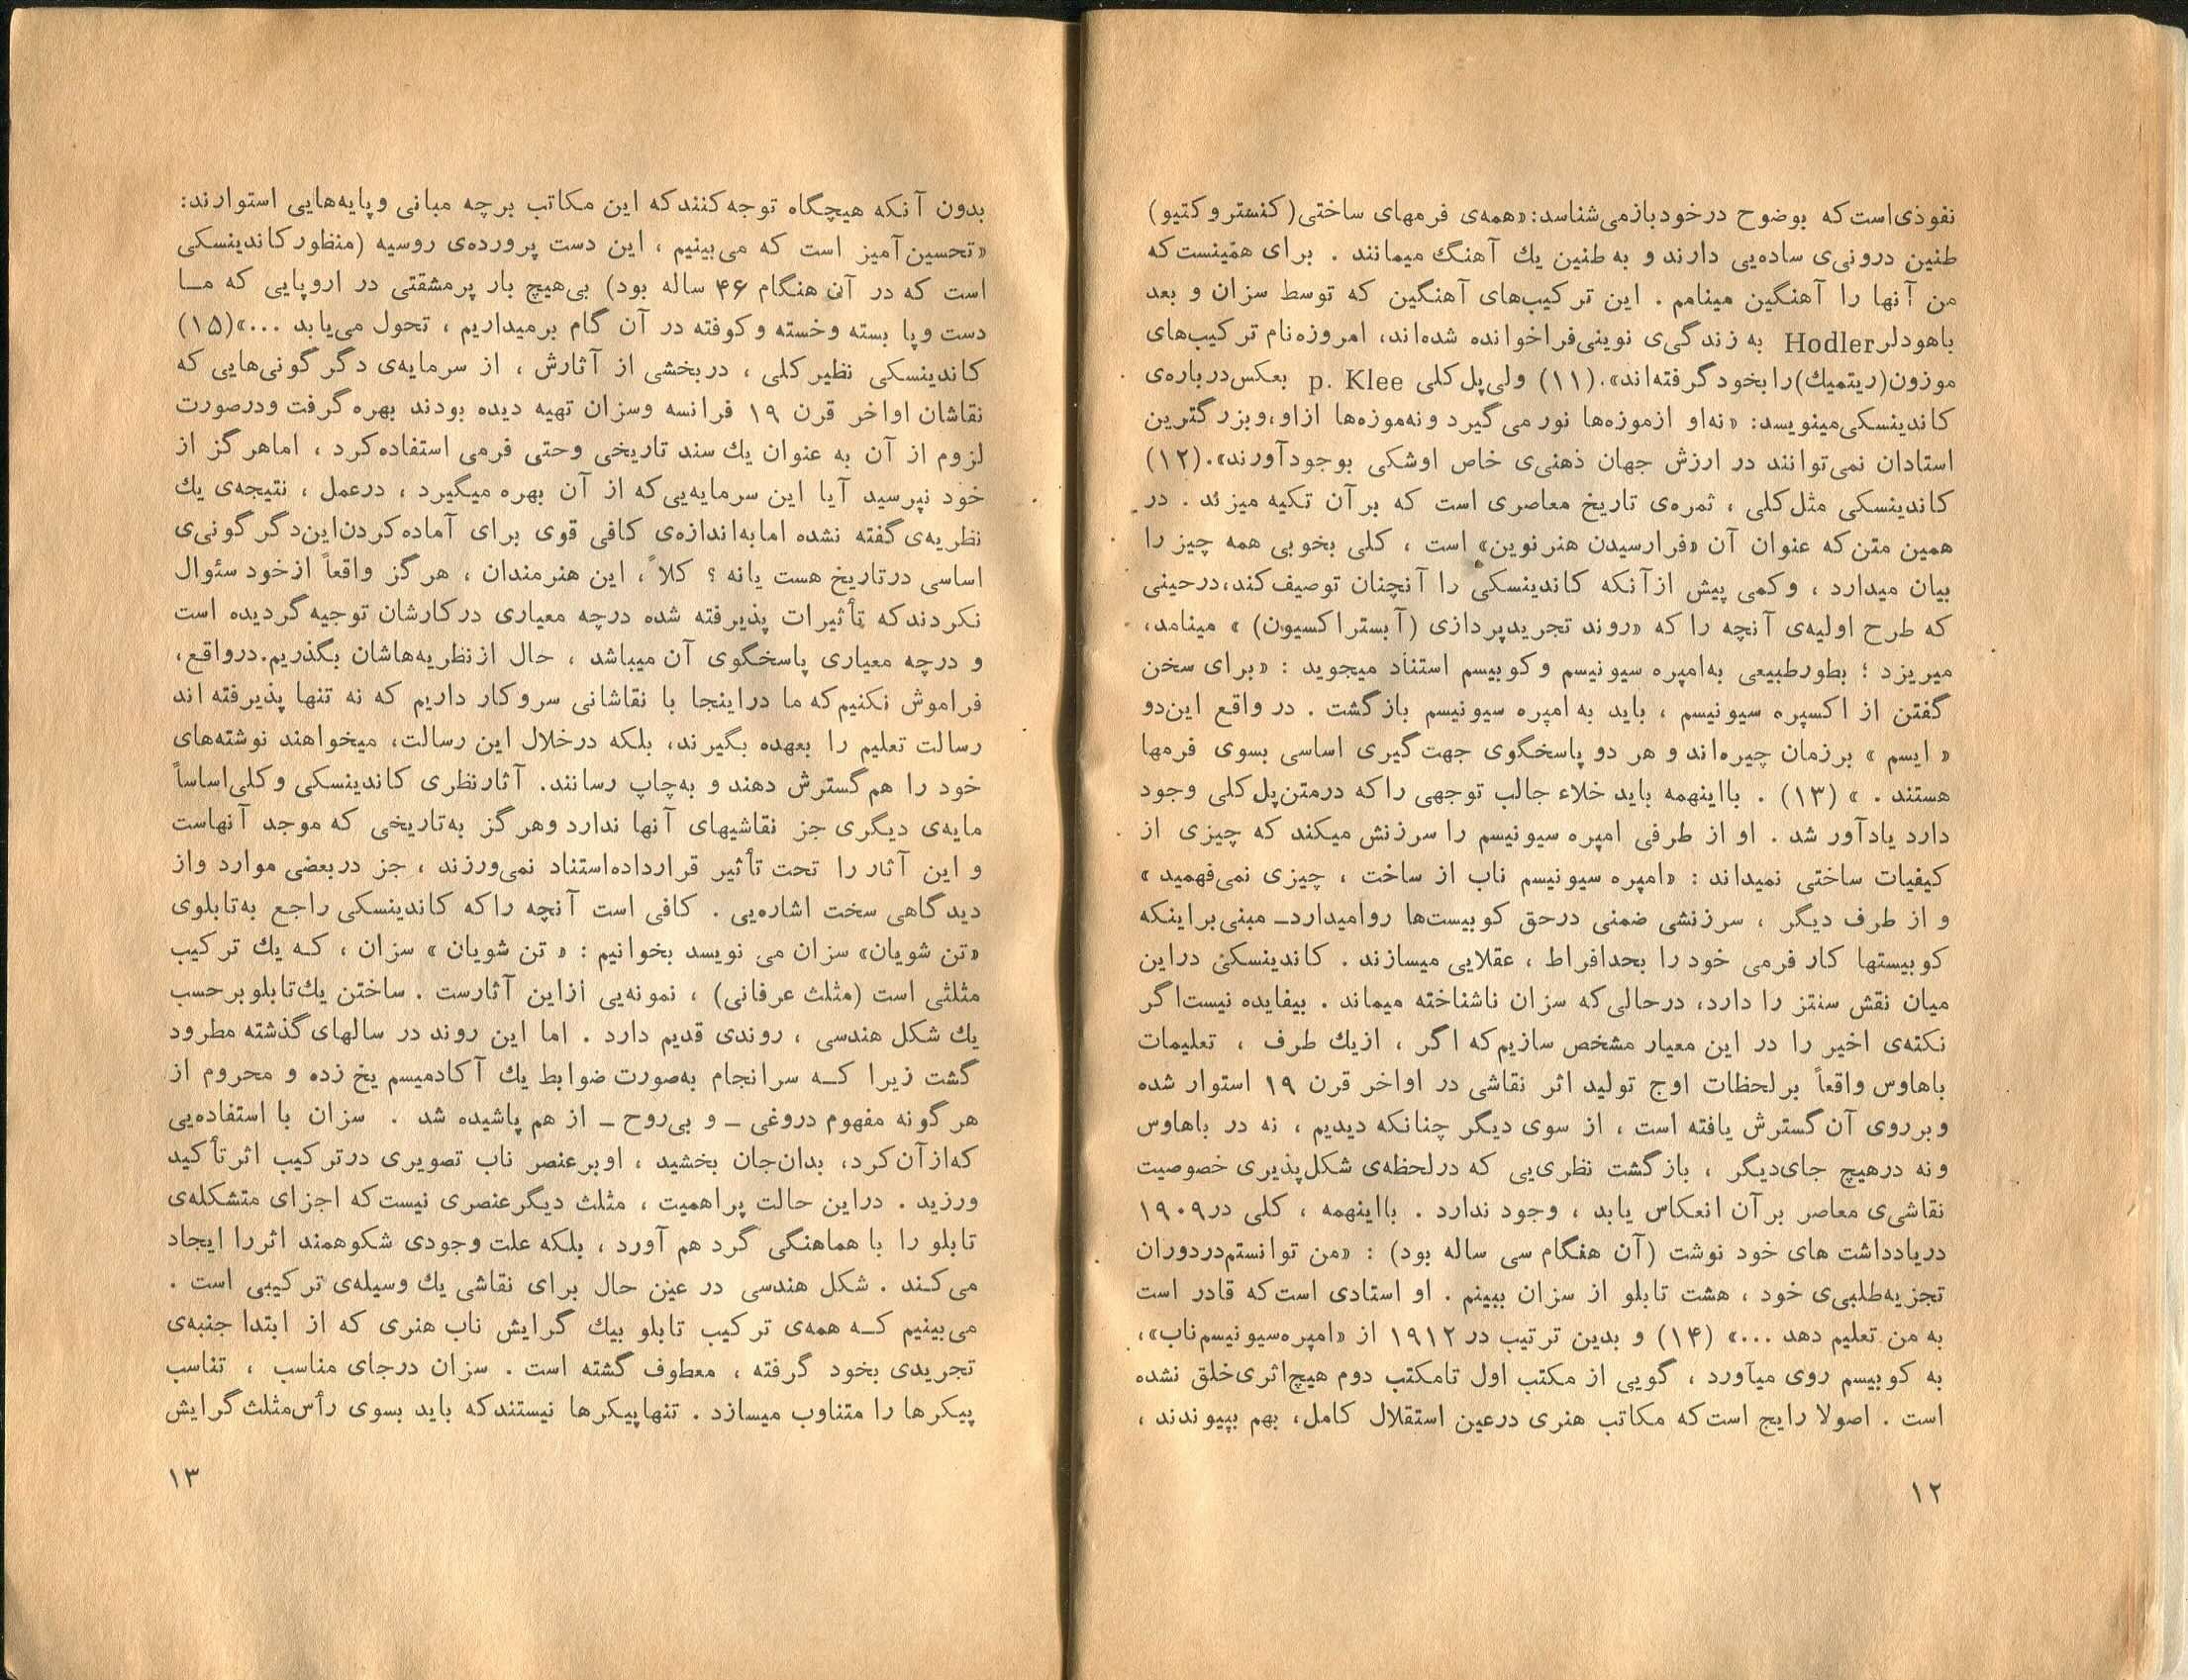 نفوذی‌است که بوضوح درخودبازمی‌شناسد: «همه‌ی فرمهای ساختی (کنستروکتیو)
طنین درونی‌ی ساده‌یی دارند و به طنین یك آهنگ میمانند . برای همینست‌که
من آنها را آهنگین مینامم . این ترکیب‌های آهنگین که توسط سزان و بعد
باهودلر Hodler به زندگی‌ی نوینی‌فراخوانده شده‌اند، امروزه‌نام ترکیب‌های
موزون(ریتمیك)رابخودگرفته‌اند». (۱۱) ولی‌پل‌کلی p. Klee بعکس‌درباره‌ی
کاندینسکی‌مینویسد: «نه‌او ازموزه‌ها نور می‌گیرد ونه‌موزه‌ها ازاو،وبزرگترین
استادان نمی‌توانند در ارزش جهان ذهنی‌ی خاص اوشکی بوجودآورند».(۱۲)
کاندینسکی مثل‌کلی ، ثمره‌ی تاریخ معاصری است که برآن تکیه میزند . در
همین متن‌که عنوان آن «فرارسیدن هنرنوین» است ، کلی بخوبی همه چیز را
بیان میدارد ، وکمی پیش ازآنکه کاندینسکی را آنچنان توصیف‌کند،درحینی
که طرح اولیه‌ی آنچه را که «روند تجریدپردازی (آبستراکسیون) » مینامد،
میریزد ؛ بطورطبیعی به‌امپره سیونیسم وکوبیسم استناد میجوید : «برای سخن
گفتن از اکسپره سیونیسم ، باید به‌امپره سیونیسم بازگشت . در واقع این‌دو
« ایسم » برزمان چیره‌اند و هر دو پاسخگوی جهت‌گیری اساسی بسوی فرمها
هستند . » (۱۳) . بااینهمه باید خلاء جالب توجهی راکه درمتن‌پل‌کلی وجود
دارد یادآور شد . او از طرفی امپره سیونیسم را سرزنش میکند که چیزی از
کیفیات ساختی نمیداند : «امپره سیونیسم ناب از ساخت ، چیزی نمی‌فهمید »
و از طرف دیگر ، سرزنشی ضمنی درحق کوبیست‌ها روامیدارد_ مبنی‌براینکه
کوبیستها کار فرمی خود را بحدافراط ، عقلایی میسازند . کاندینسکی دراین
میان نقش سنتز را دارد، درحالی‌که سزان ناشناخته میماند . بیفایده نیست‌اگر
نکته‌ی اخیر را در این معیار مشخص سازیم‌که اگر ، ازیك طرف ، تعلیمات
باهاوس واقعاً برلحظات اوج تولید اثر نقاشی در اواخر قرن ۱۹ استوار شده
وبرروی آن‌گسترش یافته است ، از سوی دیگر چنانکه دیدیم ، نه در باهاوس
ونه درهیچ جای‌دیگر ، بازگشت نظری‌یی که درلحظه‌ی شکل‌پذیری خصوصیت
نقاشی‌ی معاصر برآن انعکاس یابد ، وجود ندارد . بااینهمه ، کلی در۱۹۰۹
دریادداشت های خود نوشت (آن هنگام سی ساله بود) : «من توانستم‌دردوران
تجزیه‌طلبی‌ی خود ، هشت تابلو از سزان ببینم . او استادی است‌که قادر است
به من تعلیم دهد ...» (۱۴) و بدین ترتیب در ۱۹۱۲ از «امپره‌سیونیسم‌ناب»،
به کوبیسم روی میآورد ، گویی از مکتب اول تامکتب دوم هیچ‌اثری‌خلق نشده
است . اصولا رایج است‌که مکاتب هنری درعین استقلال کامل، بهم بپیوندند ،
۱۲
بدون آنکه هیچگاه توجه‌کنندکه این مکاتب برچه مبانی وپایه‌هایی استوارند:
«تحسین‌آمیز است که می‌بینیم ، این دست پرورده‌ی روسیه (منظورکاندینسکی
است که در آن هنگام ۴۶ ساله بود) بی‌هیچ بار پرمشقتی در اروپایی که مـا
دست وپا بسته وخسته وکوفته در آن گام برمیداریم ، تحول می‌یابد ...»(۱۵)
کاندینسکی نظیرکلی ، دربخشی از آثارش ، از سرمایه‌ی دگرگونی‌هایی که
نقاشان اواخر قرن ۱۹ فرانسه وسزان تهیه دیده بودند بهره‌گرفت ودرصورت
لزوم از آن به عنوان یك سند تاریخی وحتی فرمی استفاده‌کرد ، اماهرگز از
خود نپرسید آیا این سرمایه‌یی‌که از آن بهره میگیرد ، درعمل ، نتیجه‌ی یك
نظریه‌ی گفته نشده امابه‌اندازه‌ی کافی قوی برای آماده‌کردن‌این‌دگرگونی‌ی
اساسی درتاریخ هست یانه ؟ کلاً ، این هنرمندان ، هرگز واقعاً ازخود سئوال
نکردندکه تأثیرات پذیرفته شده درچه معیاری درکارشان توجیه گردیده است
و درچه معیاری پاسخگوی آن میباشد ، حال ازنظریه‌هاشان بگذریم.درواقع،
فراموش نکنیم‌که ما دراینجا با نقاشانی سروکار داریم که نه تنها پذیرفته اند
رسالت تعلیم را بعهده بگیرند، بلکه درخلال این رسالت، میخواهند نوشته‌های
خود را هم گسترش دهند و به‌چاپ رسانند. آثارنظری کاندینسکی وکلی‌اساساً
مایه‌ی دیگری جز نقاشیهای آنها ندارد وهرگز به‌تاریخی که موجد آنهاست
و این آثار را تحت تأثیر قرارداده‌استناد نمی‌ورزند ، جز دربعضی موارد واز
دیدگاهی سخت اشاره‌یی . کافی است آنچه راکه کاندینسکی راجع به‌تابلوی
«تن شویان» سزان می نویسد بخوانیم : « تن شویان » سزان ، کـه یك ترکیب
مثلثی است (مثلث عرفانی) ، نمونه‌یی ازاین آثارست . ساختن یك‌تابلوبرحسب
یك شکل هندسی ، روندی قدیم دارد . اما این روند در سالهای گذشته مطرود
گشت زیرا کـه سرانجام به‌صورت ضوابط یك آکادمیسم یخ زده و محروم از
هرگونه مفهوم دروغی _ و بی‌روح _ از هم پاشیده شد . سزان با استفاده‌یی
که‌ازآن‌کرد، بدان‌جان بخشید ، اوبرعنصر ناب تصویری درترکیب اثرتأکید
ورزید . دراین حالت پراهمیت ، مثلث دیگرعنصری نیست‌که اجزای متشکله‌ی
تابلو را با هماهنگی گرد هم آورد ، بلکه علت وجودی شکوهمند اثررا ایجاد
می‌کـند . شکل هندسی در عین حال برای نقاشی یك وسیله‌ی ترکیبی است .
می‌بینیم کـه همه‌ی ترکیب تابلو بیك گرایش ناب هنری که از ابتدا جنبه‌ی
تجریدی بخود گرفته ، معطوف گشته است . سزان درجای مناسب ، تناسب
پیکرها را متناوب میسازد . تنهاپیکرها نیستندکه باید بسوی رأس‌مثلث گرایش
۱۳